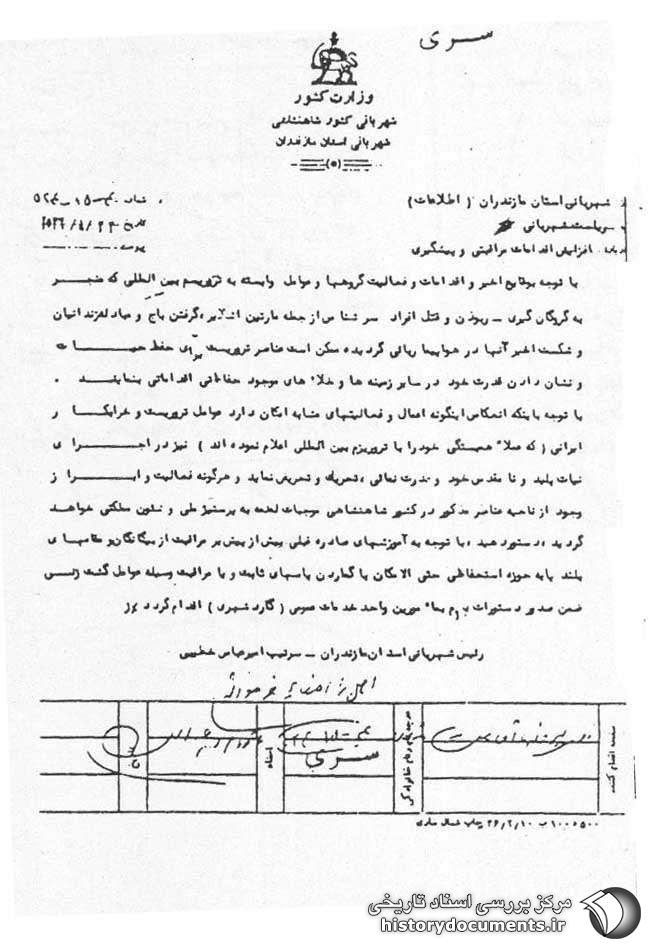 سری
وزارت کشور
شهربانی کشور شاهنشاهی
شهربانی استان مازندران
شهربانی استان مازندران ( اطلاعات )
ریاست شهربانی
افزایش اقدامات مراقبتی و پیشگیری
شماره
تاریخ
پیوست
با توجه بوقایع اخیر و اقدامات و فعالیت گروهها و عوامل وابسته به تروریسم بین المللی که منجر
به گروگان گیری – ربودن و قتل افراد سرشناس از جمله مارتین اشلایر ، گرفتن باج و مبادله زندانیان
و شکست اخیر آنها در هواپیما ربائی گردیده ممکن است عناصر تروریست برای حفظ حیثیت
و نشان دادن قدرت خود در سایر زمینه ها و خلاء های موجود حفاظتی اقداماتی بنمایند .
با توجه باینکه انعکاس اینگونه اعمال و فعالیتهای مشابه امکان دارد عوامل تروریست و خرابکار
ایرانی ( که عملا" همبستگی خود را با تروریزم بین المللی اعلام نموده اند ) نیز در اجرای
نیات پلید و نا مقدس خود و قدرت نمائی ، تحریک و تحریض نماید و هرگونه فعالیت و ابراز
وجود از ناحیه عناصر مذکور در کشور شاهنشاهی موجبات لطمه به پرستیژ ملی و شئون مملکتی خواهد
گردید ، دستور دهید ، با توجه به آموزشهای صادره قبلی بیش از پیش بر مراقبت از بیگانگان و مقامهای
بلند پایه حوزه استحفاظی حتی الامکان با گماردن پاسهای ثابت و یا مراقبت وسیله عوامل گشت زنی
ضمن صدور دستورات لازم بمأمورین واحد خدمات عمومی ( گارد شهری ) اقدام گردد
رئیس شهربانی استان مازندران – سرتیپ امیرعباس خطیبی
اصل
سری
صفحه اقدام کننده
درجه نام و نام خانوادگی
امضاء
تاریخ
۵۰۰×۱۰۰ ب ۳۶/۲/۱۰ چاپ شمال ساری
مرکز بررسی اسناد تاریخی
historydocuments.ir